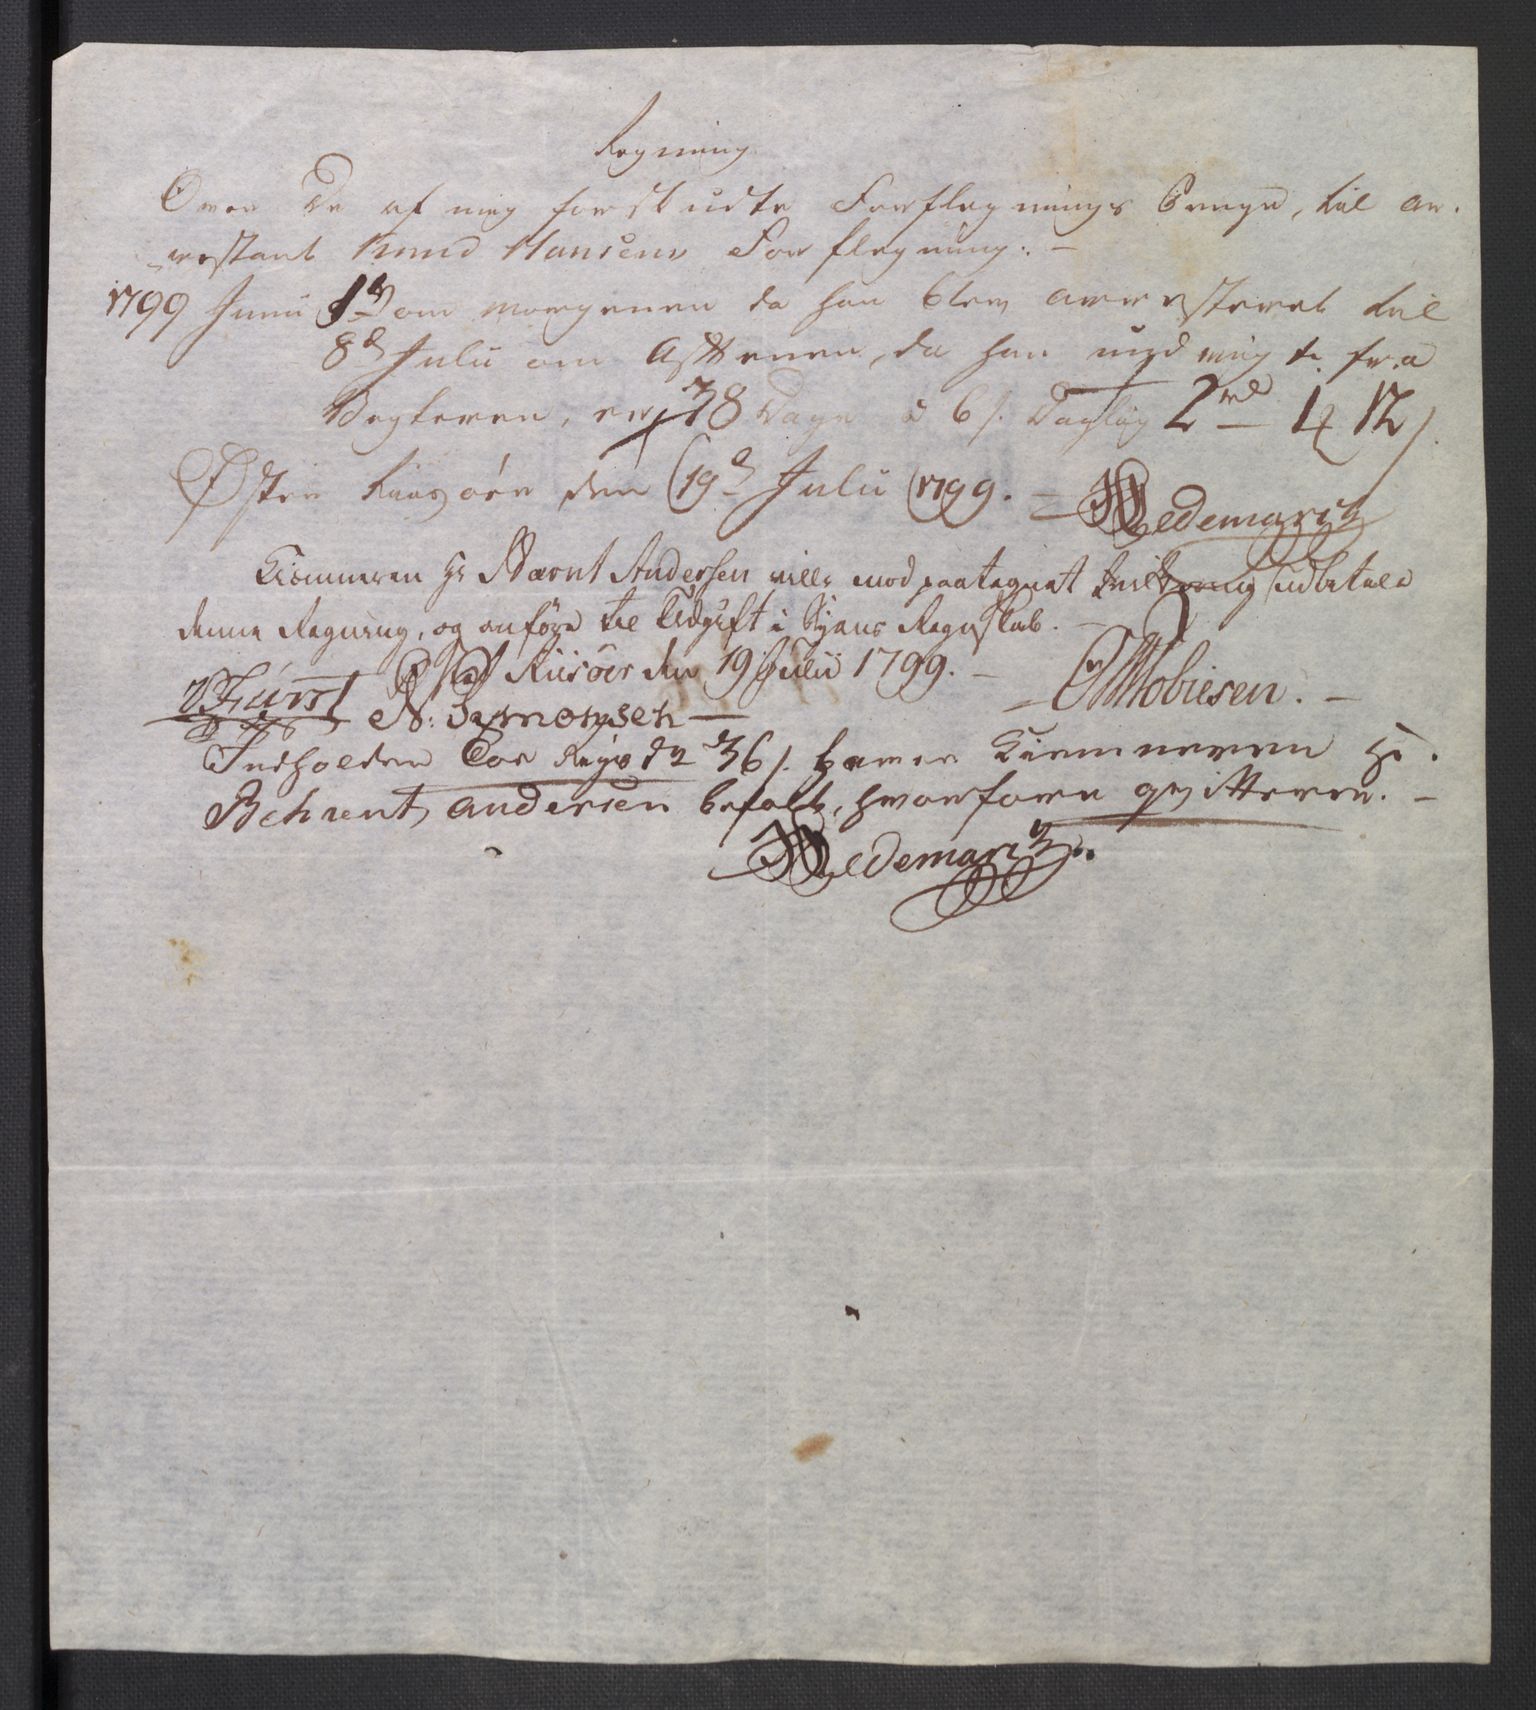 Regning
Over De af mig forskudte Forflegnings Penge, til Ar-
restant Knud Hansens Forflegning. –
1799 Junii 1d om morgenen da han blev arresteret til
8d Julii om Aftenen, da han und vig te fra
Vegteren, er 38 Dage à 6 s. Daglig 2 rd – 12 s.
Øster Riisøer den 19d Julii 1799. – Hedemarck
Kiemneren Hr Bærnt Andersen ville mod paategnet qvittering udbetale
denne Regning, og anføre til Udgift i Byens Regnskab. –
Øster Riisöer den 19 Julii 1799. –
Fürst N: Symonsen – – Mobiesen. –
Indholden 36 s. haver Kiemneren Hr.
Behrent Andersen betalt, hvorforre qvitterer. –
Hedemarck